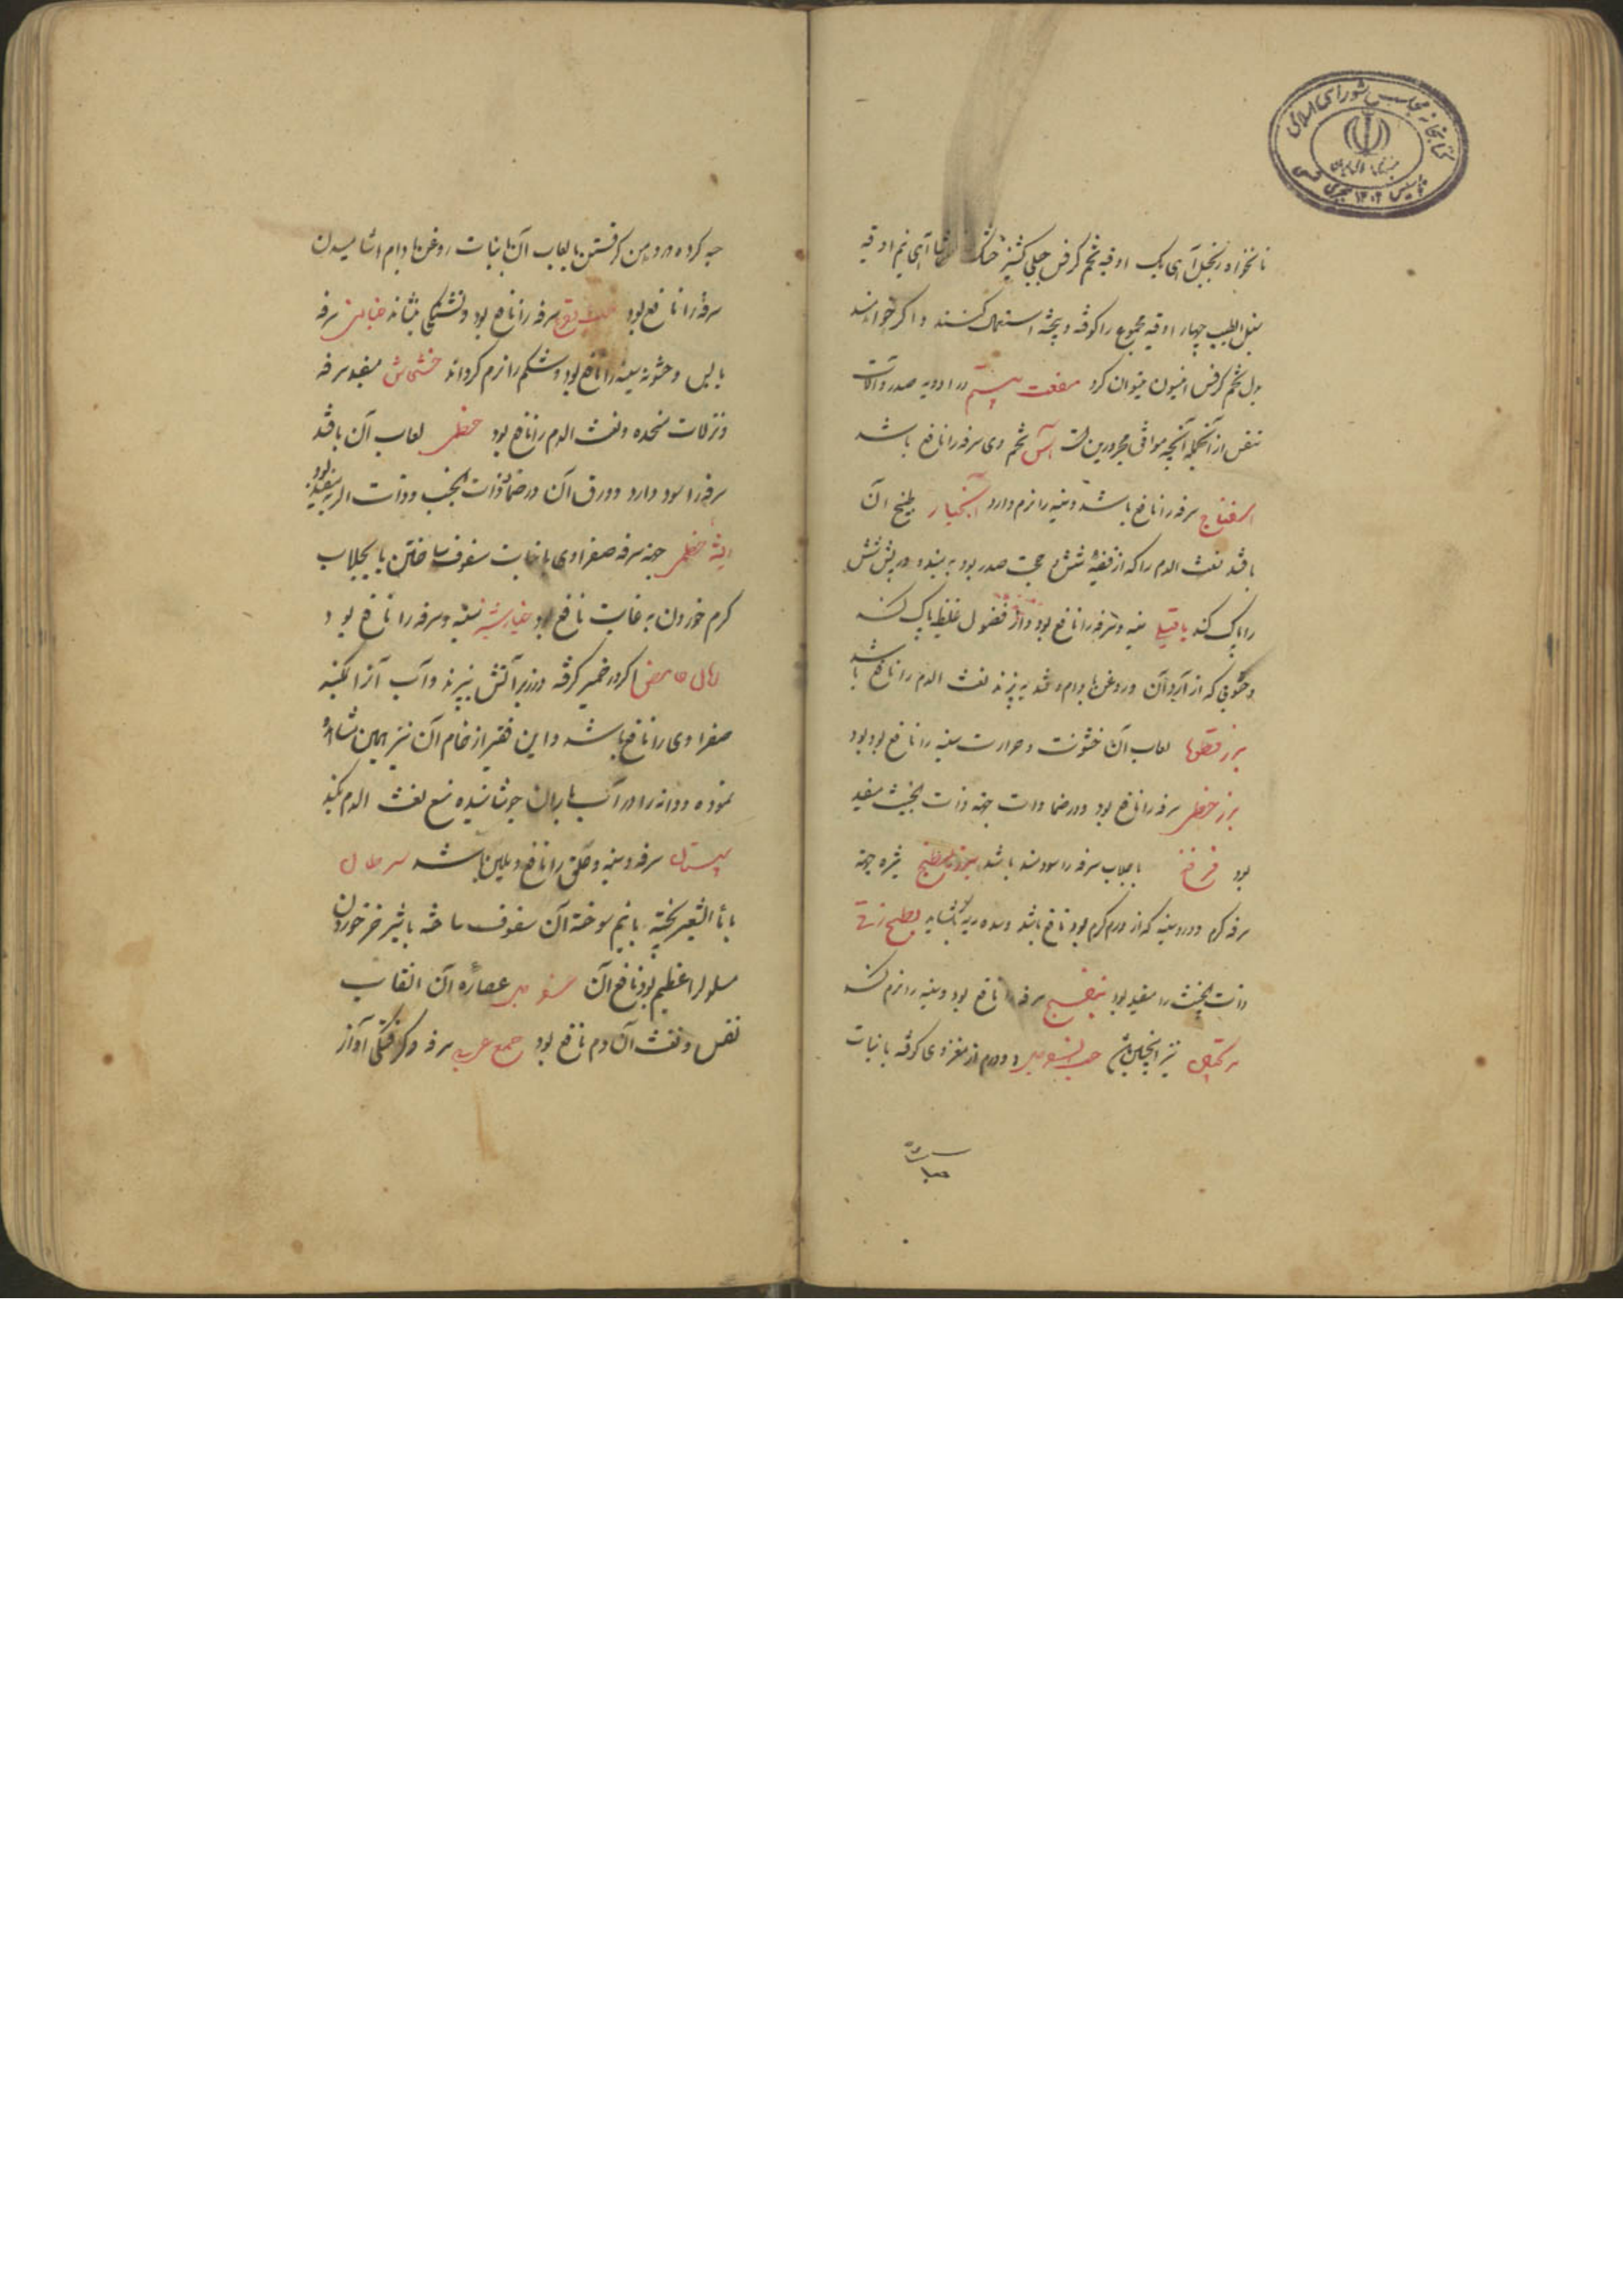 کتابخانه مجلس شورای اسلامی
نانخواه زنجبیل آهی یک اوقیه تخم کرفس جبلی کشنیز خشک آهی نیم اوقیه
سنبل الطیب چهار اوقیه مجموع را کوفته و پخته استعمال کنند و اگر خواهند
بدل تخم کرفس افیون میتوان کرد منفعت بیستم در ادویه صدر و آلات
تنفس از آنجمله آنچه موافق محرورین است آس تخم وی سرفه را نافع باشد
اسفناج سرفه را نافع باشد و سینه را نرم دارد انجبار طبیخ آن
باقند نفث الدم را که از قصبه شش و حجب صدر بود به بندد و ریش شش
را پاک کند باقلی سینه و سرفه را نافع بود و از فضول غلیظ پاک کند
و حسوئی که از آرد آن و روغن بادام و قند به پزند نفث الدم را نافع باشد
بزر قطونا لعاب آن خشونت و حرارت سینه را نافع بود
بزر خطمی سرفه را نافع بود و در ضمادات جهة ذات الجنب مفید
بود فرفخ با جلاب سرفه را سودمند باشد بزر بطیخ شیره جهة
سرفه گرم و درد سینه که از ورم گرم بود نافع باشد و سده ریه بگشاید بطیخ زقی
ذات الجنب را مفید بود بنفسج سرفه را نافع بود و سینه را نرم کند
نیز همچنین حب السفرجل دو درم از مغز وی کوفته با نبات
حب کرده در دهن گرفتن یا لعاب آن با نبات روغن بادام اشامیدن
سرفه را نافع بود سرفه را نافع بود و تشنگی بنشاند خبازی سرفه
یابس و خشونة سینه را نافع بود و شکم را نرم گرداند خشخاش مفید سرفه
و نزلات منحدره و نفث الدم را نافع بود خطمی لعاب آن باقند
سرفه را سود دارد و ورق آن در ضماد ذات الجنب و ذات الریه مفید بود
ریشه خطمی جهة سرفه صفراوی با نبات سفوف ساختن یا بجلاب
گرم خوردن به غایت نافع بود خیارشنبر سینه و سرفه را نافع بود
رمان حامض اگر در خمیر گرفته در زیر آتش بپزند و آب آن را بگیرند
صفراوی را نافع باشد و این فقیر از خام آن نیز همین مشاهده
نموده و دانه را در آب باران جوشانیده منع نفث الدم بکند
سپستان سرفه و سینه و حلق را نافع و ملین باشد سرطان
با ماء الشعیر پخته یا نیم سوخته آن سفوف ساخته با شیر خر خوردن
مسلول را عظیم بود نافع آن سفرجل عصاره آن انتصاب
نفس و نفث آن دم نافع بود صمغ عربی سرفه و گرفتگی آواز